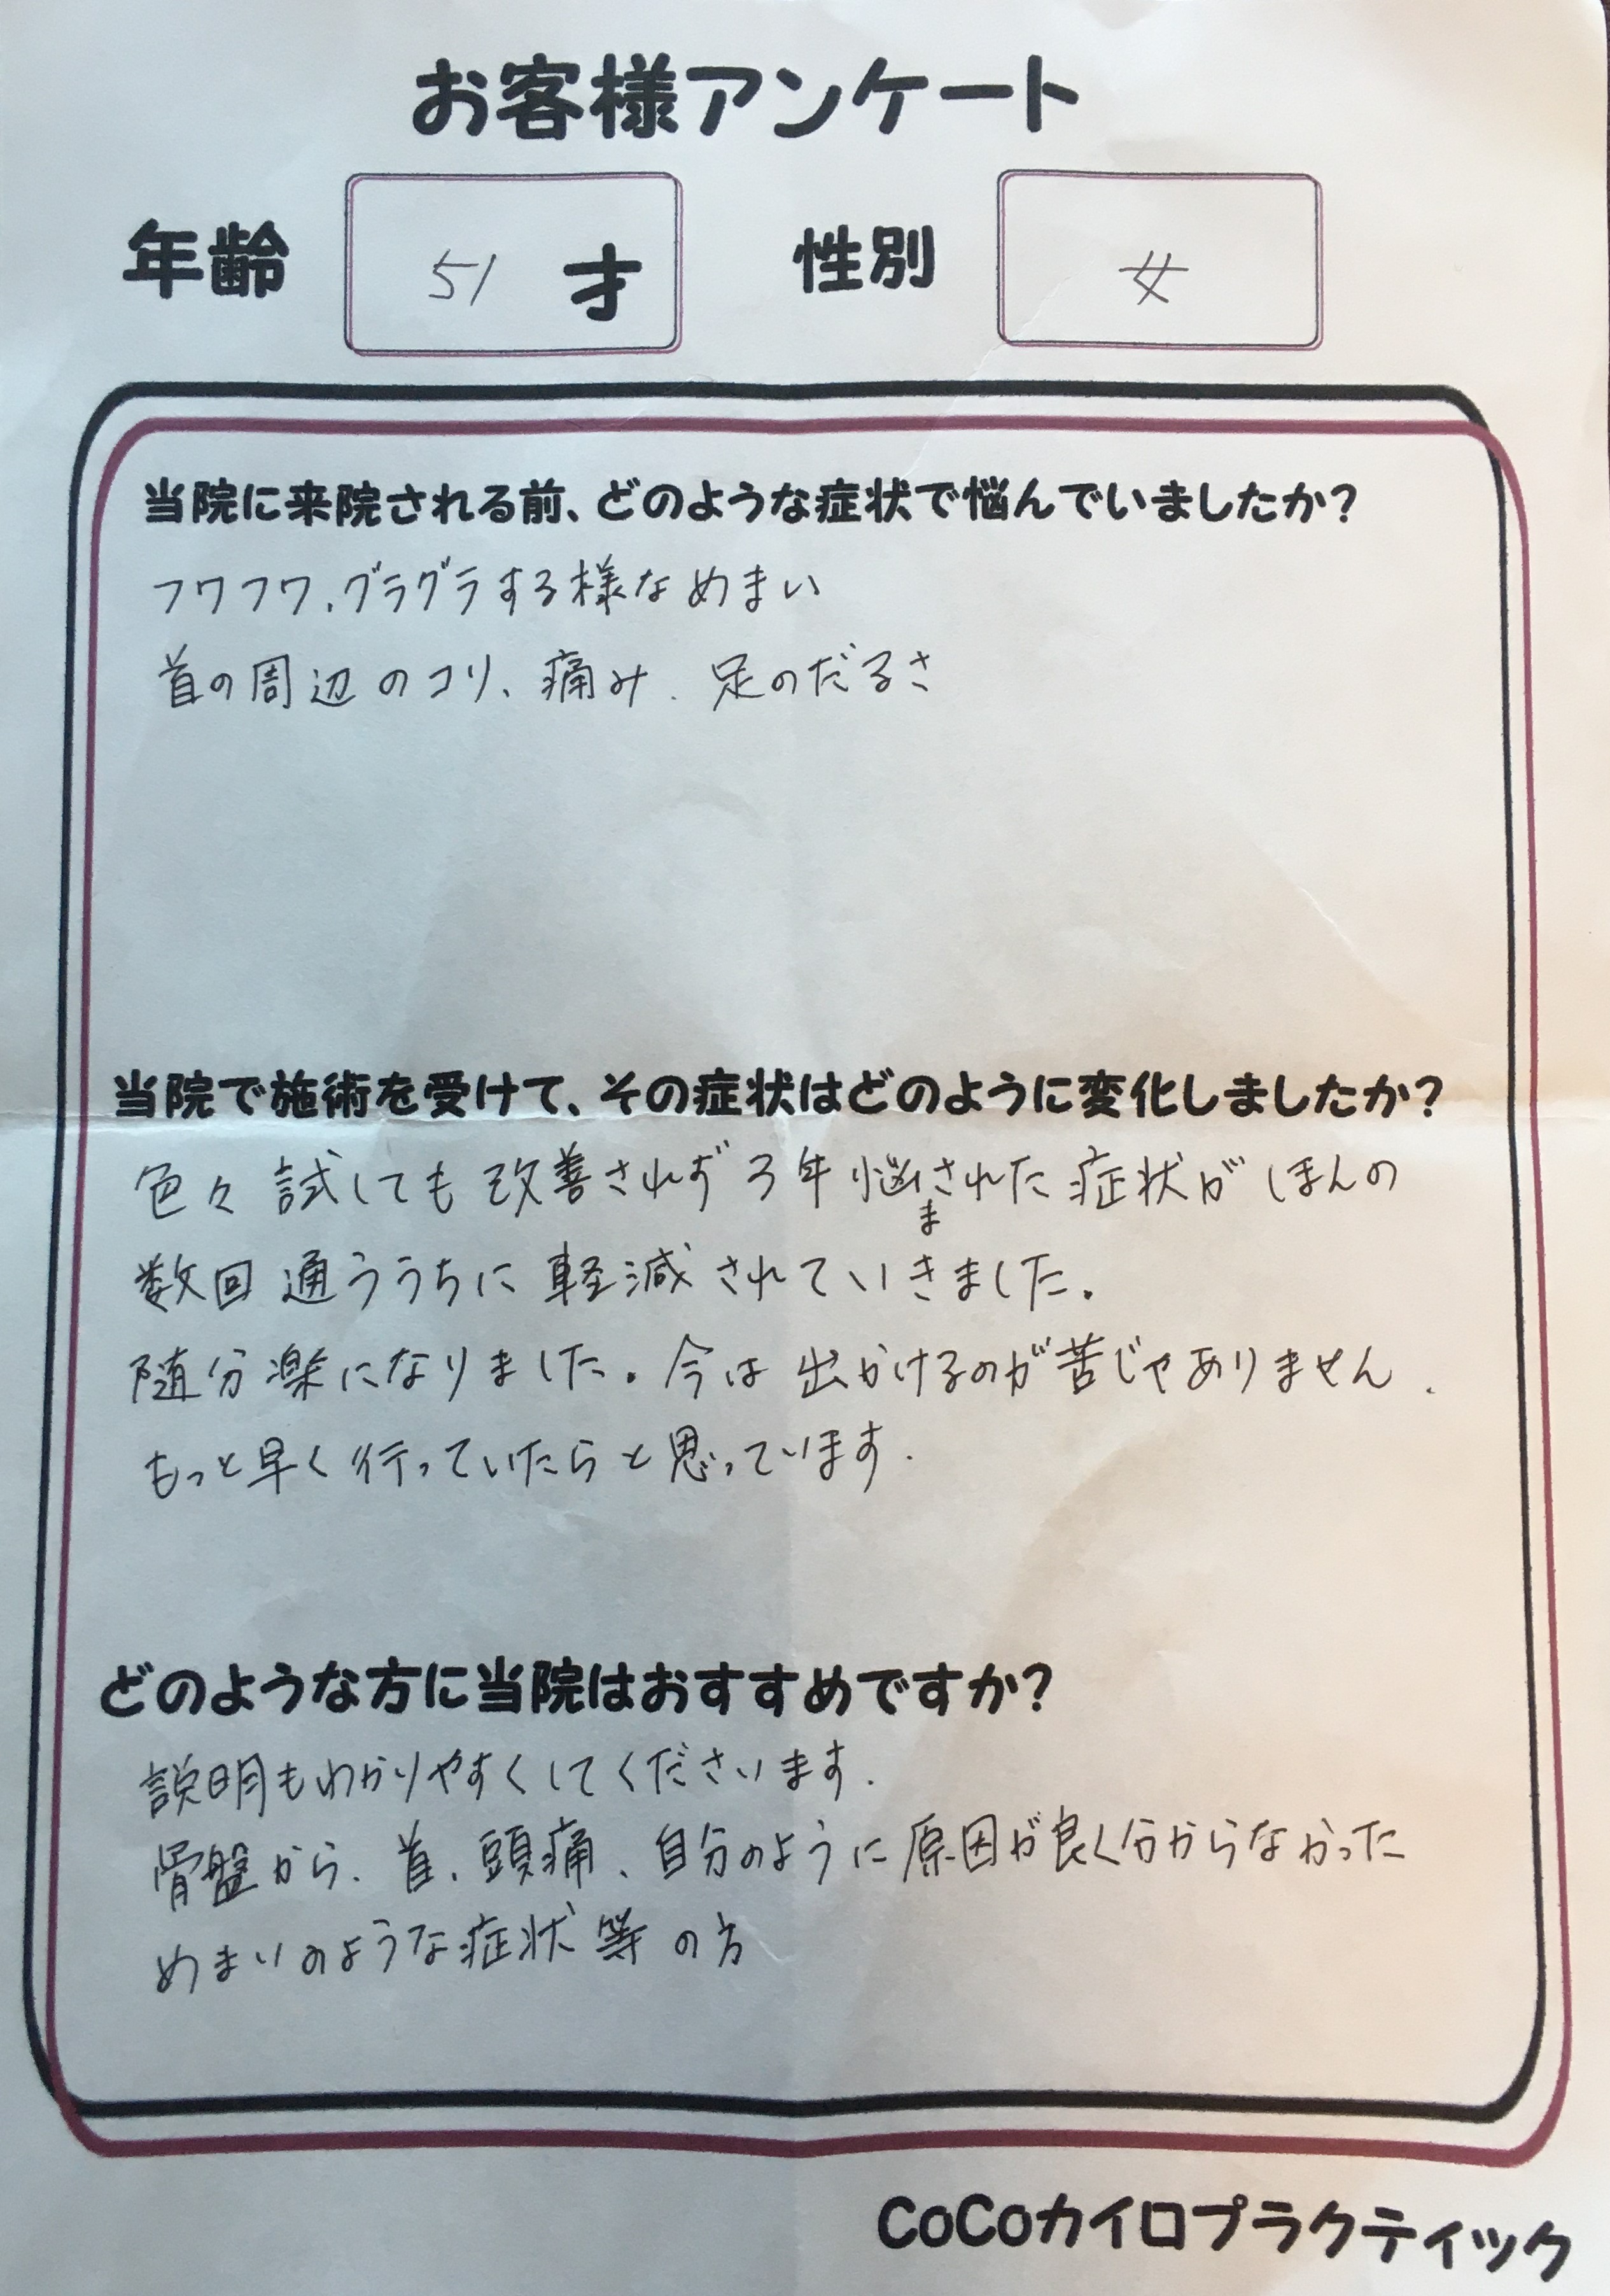 お客様アンケート
年齢 51 才 性別 女
当院に来院される前、どのような症状で悩んでいましたか?
フワフワ、グラグラする様なめまい
首の周辺のコリ、痛み、足のだるさ
当院で施術を受けて、その症状はどのように変化しましたか?
色々試しても改善されず3年悩まされた症状がほんの
数回通ううちに軽減されていきました。
随分楽になりました。今は出かけるのが苦じゃありません。
もっと早く行っていたらと思っています。
どのような方に当院はおすすめですか?
説明もわかりやすくしてくださいます。
骨盤から、首、頭痛、自分のように原因が良く分からなかった
めまいのような症状等の方
CoCoカイロプラクティック